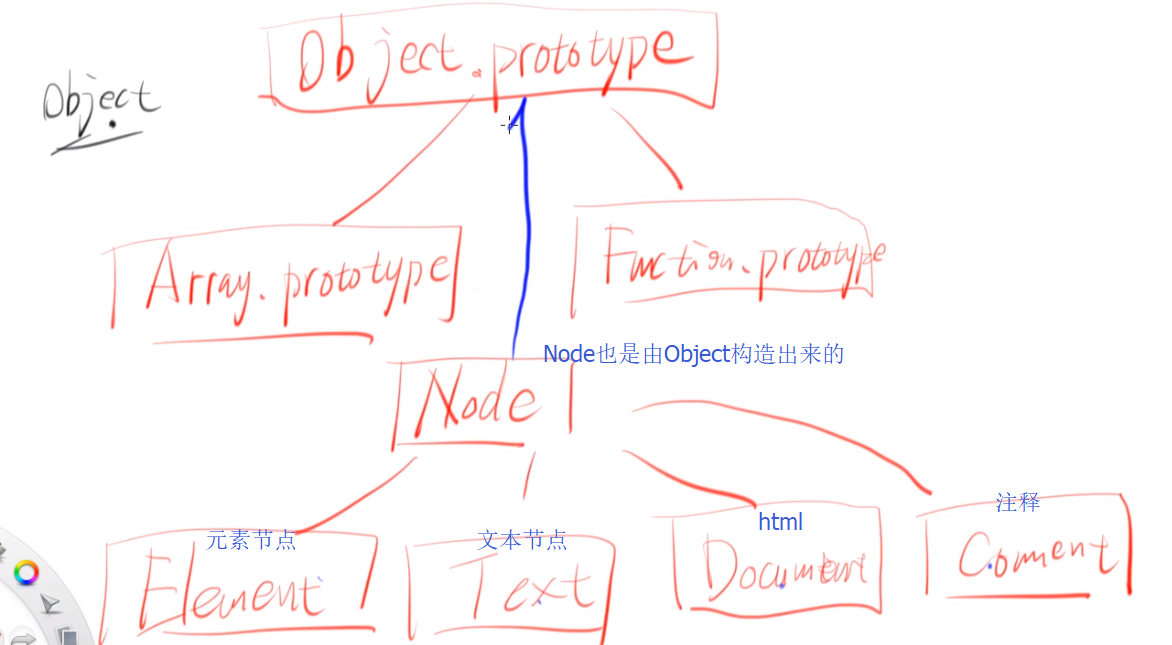 Object.prototype
Object
Array.prototype
Function.prototype
Node也是由Object构造出来的
Node
元素节点
文本节点
html
注释
Element
Text
Document
Coment